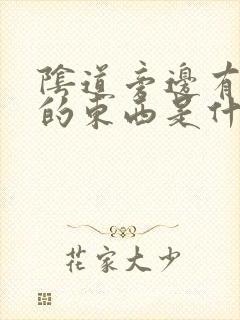 陰道旁邊有
的東西是什
花家大少